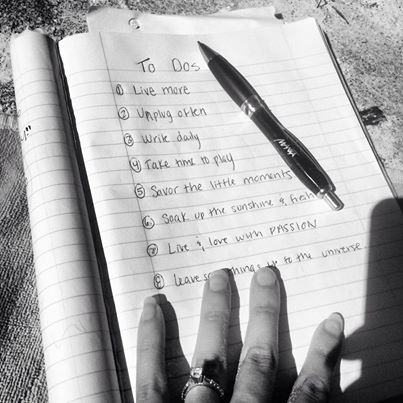 To Dos
① Live more
② Unplug often
③ Write daily
④ Take time to play
⑤ Savor the little moments
⑥ Soak up the sunshine & fresh
⑦ Live & love with PASSION
⑧ leave things to the universe